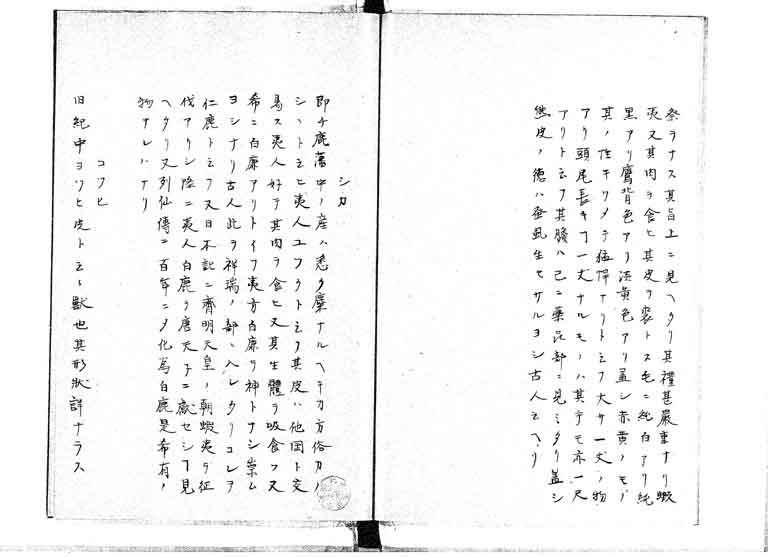 祭ヲナス其旨上ニ見ヘタリ其禮甚嚴重ナリ蝦
夷又其肉ヲ食ヒ其皮ヲ裘トス毛ニ純白アリ純
黒アリ鷹背色アリ淡黄色アリ並シ赤黄ノモノ
其ノ性キワメテ猛悍ナリトミフ大サ一丈ノ物
アリ頭尾長キフ一丈ナルモノハ其子モ亦一尺
アリトミフ其膽ハ已ニ藥品部ニ見ミタリ蓋シ
熊皮ノ徳ハ蚤虱生セサルヨシ古人云ヘリ
シカ
即チ鹿藩中ノ産ハ悉ク麋ナルヘチ刀方俗カノ
シヽト云ヒ夷人ユフクトミフ其皮ハ他国ト交
易ス夷人好テ其肉ヲ食ヒ又其生體ヲ吸食フ又
希ニ白鹿アリトイフ夷方白鹿ヲ神トナシ崇ム
ヨシナリ古人此ヲ祥瑞ノ部ニ入レタリコレヲ
仁鹿トミフ又日本記ニ齊明天皇ノ朝蝦夷ヲ征
伐アリシ陸ニ夷人白鹿ヲ唐天子ニ獻セシフ見
ヘタリ又列仙傳ニ百年ニメ化為白鹿是希有ノ
物ナレハナリ
コワヒ
旧紀中ヨソヒ皮ト云ヽ獸也其形狀詳ナラス